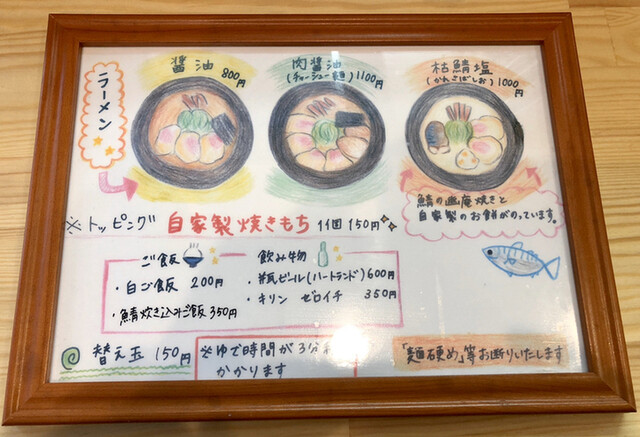 ラーメン
醤油
800円
肉醤油
(チャーシュー麺)1100円
枯鯖塩
(かれさばしお)1000円
鯖の幽庵焼きと
自家製のお餅がのっています。
※トッピング 自家製焼きもち 1個150円
ご飯
・白ご飯 200円
・鯖炊き込みご飯 350円
飲み物
・瓶ビール(ハートランド)600円
・キリン ゼロイチ 350円
替え玉 150円
※ゆで時間が3分
かかります
「麺硬め」等お断りいたします